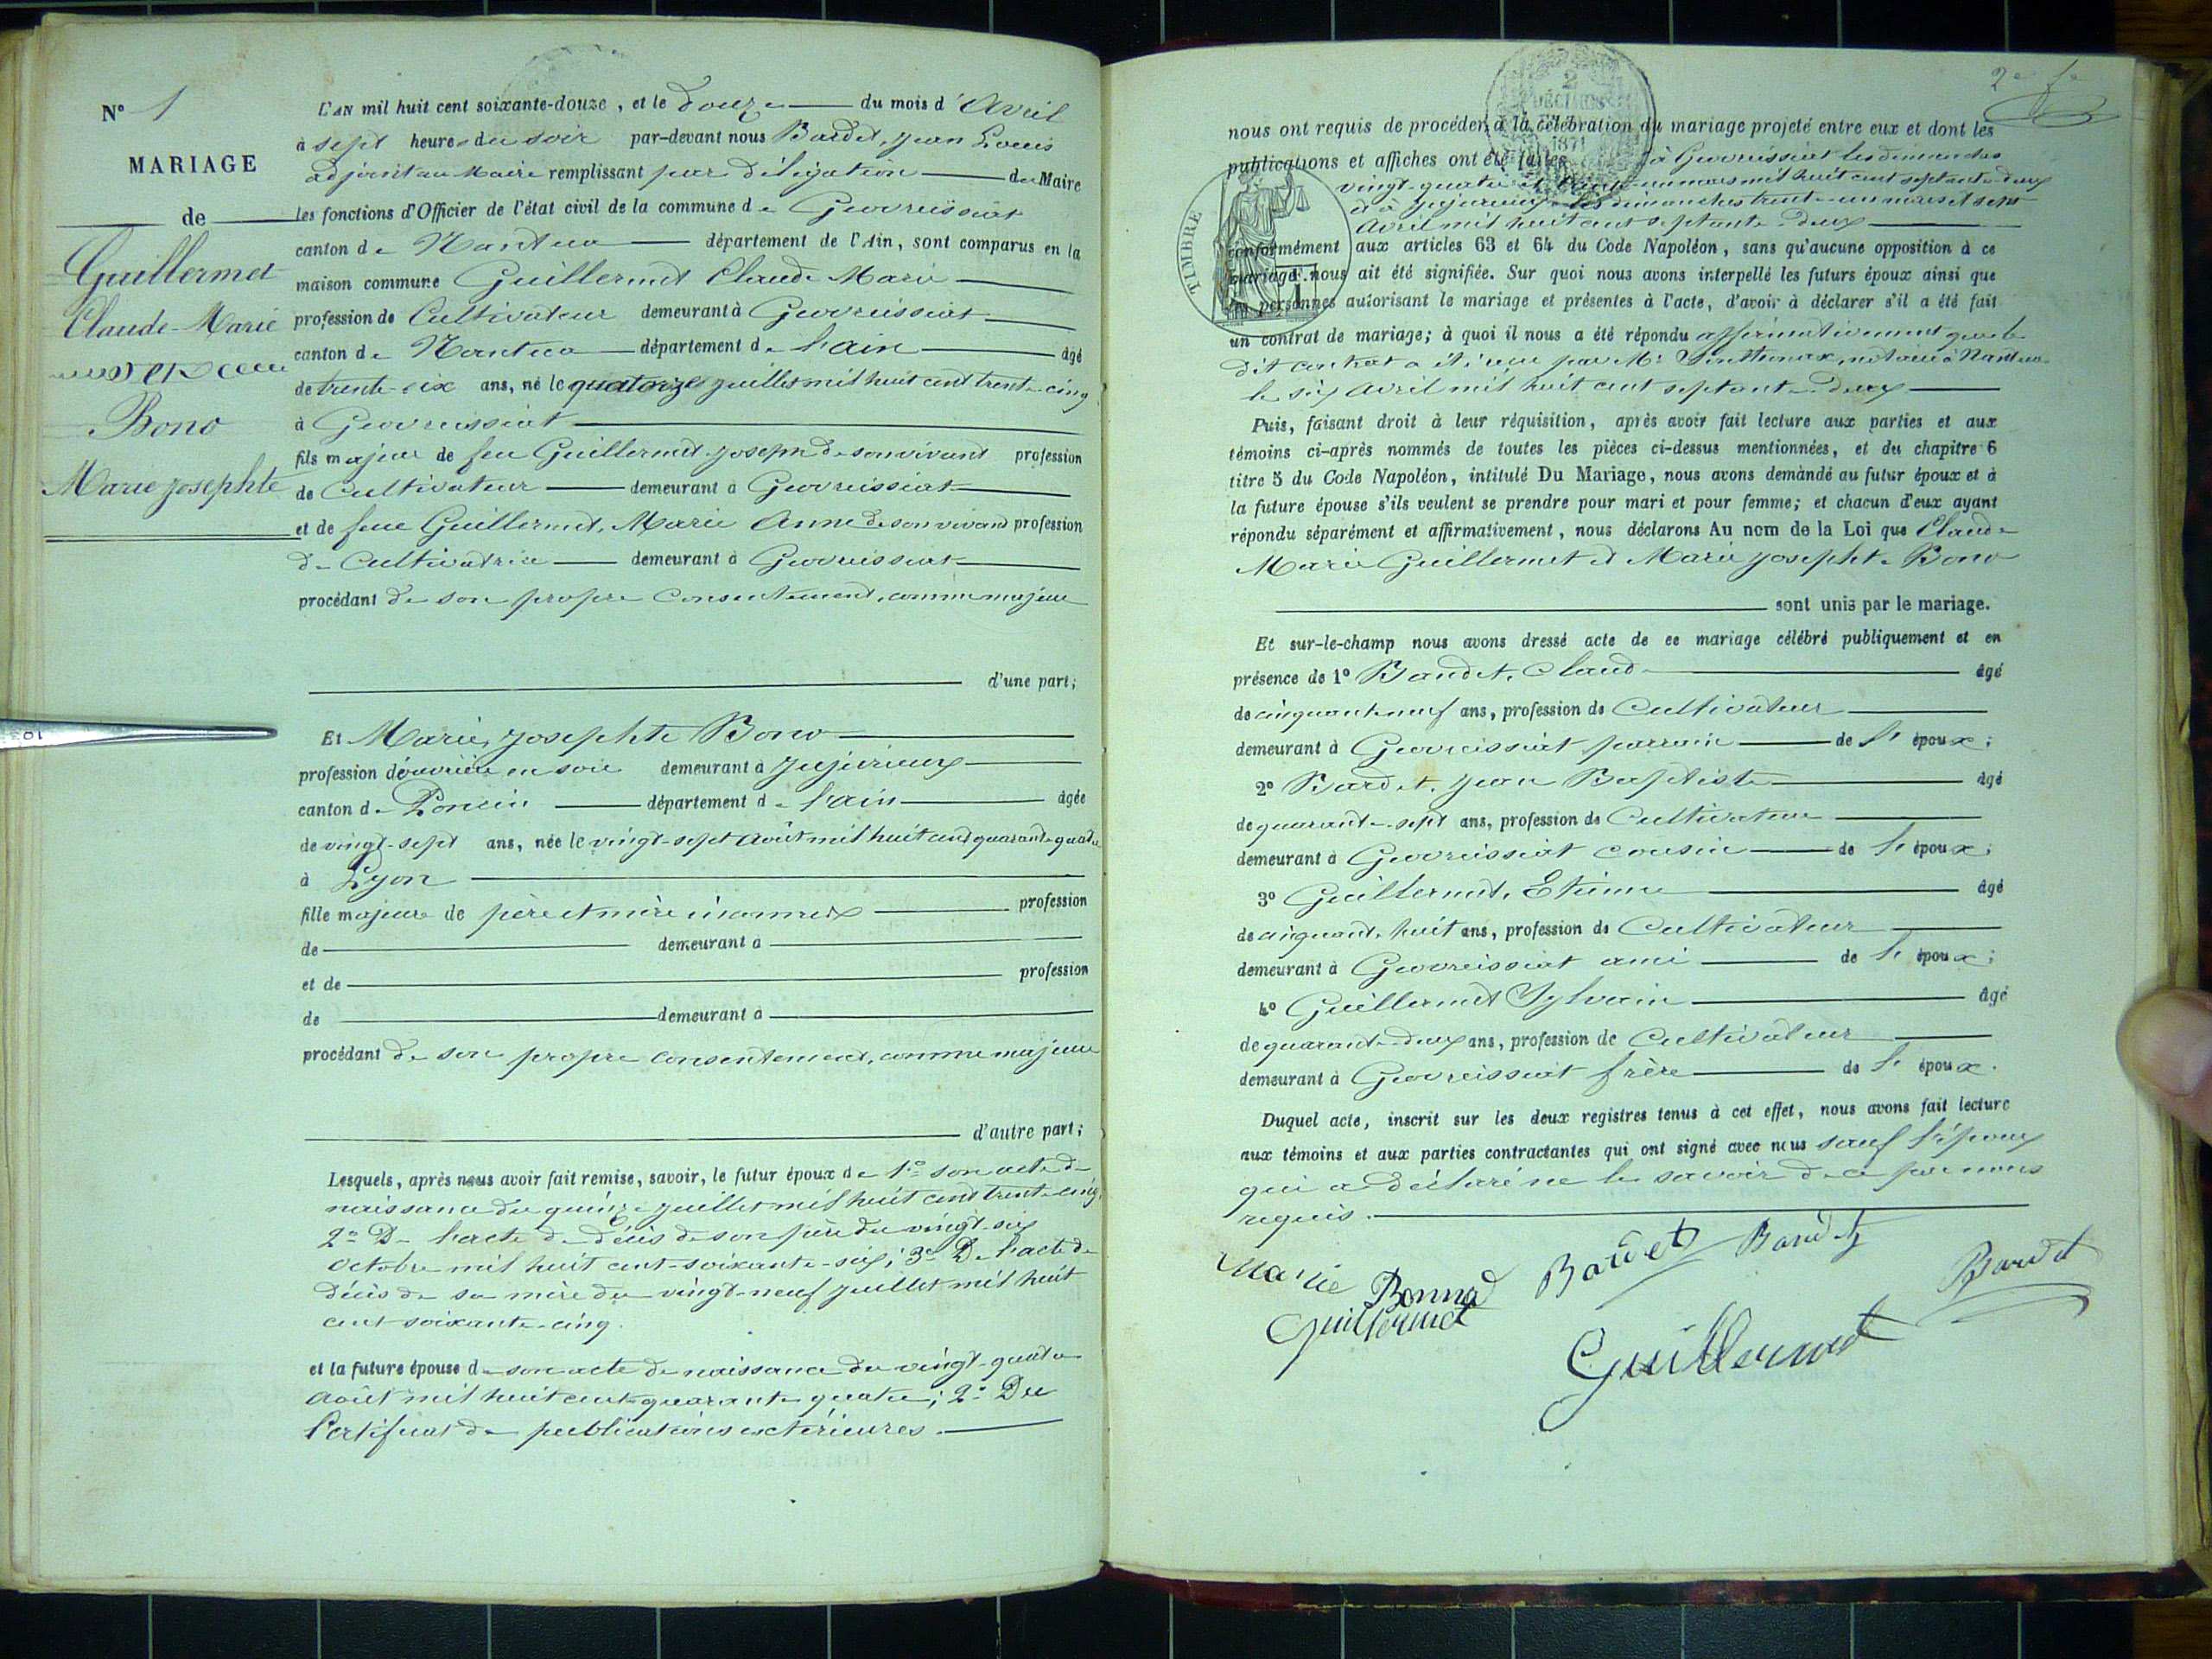 N° 1
MARIAGE
de
Guillermet
Claude-Marie
avec
Bono
Marie josephte
L'AN mil huit cent soixante-douze, et le douze du mois d'Avril
à sept heure du soir par-devant nous Baudet, jean Louis
adjoint au Maire remplissant par délégation du Maire
les fonctions d'Officier de l'état civil de la commune de Geovreissiat
canton de Nantua département de l'Ain, sont comparus en la
maison commune Guillermet Claude Marie
profession de Cultivateur demeurant à Geovreissiat
canton de Nantua département de l'ain âgé
de trente-six ans, né le quatorze juillet mil huit cent trente-cinq
à Geovreissiat
fils majeur de feu Guillermet joseph de son vivant profession
de Cultivateur demeurant à Geovreissiat
et de feue Guillermet, Marie Anne de son vivant profession
de Cultivatrice demeurant à Geovreissiat
procédant de son propre Consentement, comme majeur
d'une part;
Et Marie, josephte Bono
profession d'ouvrière en soie demeurant à jujurieux
canton de Poncin département de l'ain âgée
de vingt-sept ans, née le vingt-sept Août mil huit cent quarante-quatre
à Lyon
fille majeure de père et mère inconnus profession
de demeurant à
et de profession
de demeurant à
procédant de son propre consentement, comme majeure
d'autre part;
Lesquels, après nous avoir fait remise, savoir, le futur époux de 1° son acte de
naissance du quinze juillet mil huit cent trente-cinq
2° De l'acte de décès de son père du vingt-six
Octobre mil huit cent-soixante-six; 3° De l'acte de
décès de sa mère du vingt-neuf juillet mil huit
cent soixante-cinq.
et la future épouse de son acte de naissance du vingt-quatre
Août mil huit cent quarante quatre; 2° Du
Certificat de publications extérieures.
2
DÉCIMES
1871
TIMBRE
nous ont requis de procéder à la célébration du mariage projeté entre eux et dont les
publications et affiches ont été faites à Geovreissiat les dimanches
vingt-quatre et trente-un mars mil huit cent septante-deux
et à jujurieux les dimanches trente-un mars et sept
Avril mil huit cent septante-deux
conformément aux articles 63 et 64 du Code Napoléon, sans qu'aucune opposition à ce
mariage nous ait été signifiée. Sur quoi nous avons interpellé les futurs époux ainsi que
les personnes autorisant le mariage et présentes à l'acte, d'avoir à déclarer s'il a été fait
un contrat de mariage; à quoi il nous a été répondu affirmativement que le
dit contrat a été reçu par Me notaire à Nantua
le six Avril mil huit cent septante-deux
Puis, faisant droit à leur réquisition, après avoir fait lecture aux parties et aux
témoins ci-après nommés de toutes les pièces ci-dessus mentionnées, et du chapitre 6
titre 5 du Code Napoléon, intitulé Du Mariage, nous avons demandé au futur époux et à
la future épouse s'ils veulent se prendre pour mari et pour femme; et chacun d'eux ayant
répondu séparément et affirmativement, nous déclarons Au nom de la Loi que Claude
Marie Guillermet et Marie josephte Bono
sont unis par le mariage.
Et sur-le-champ nous avons dressé acte de ce mariage célébré publiquement et en
présence de 1° Baudet, Claude âgé
de cinquante neuf ans, profession de Cultivateur
demeurant à Geovreissiat parrain de l'époux;
2° Baudet, jean Baptiste âgé
de quarante-sept ans, profession de Cultivateur
demeurant à Geovreissiat cousin de l'époux;
3° Guillermet, Etienne âgé
de cinquante huit ans, profession de Cultivateur
demeurant à Geovreissiat ami de l'époux;
4° Guillermet Sylvain âgé
de quarante-deux ans, profession de Cultivateur
demeurant à Geovreissiat frère de l'époux.
Duquel acte, inscrit sur les deux registres tenus à cet effet, nous avons fait lecture
aux témoins et aux parties contractantes qui ont signé avec nous sauf l'époux
qui a déclaré ne le savoir de ce par nous
requis.
Marie Bonno Baudet Baudet Baudet
Guillermet
Guillermet